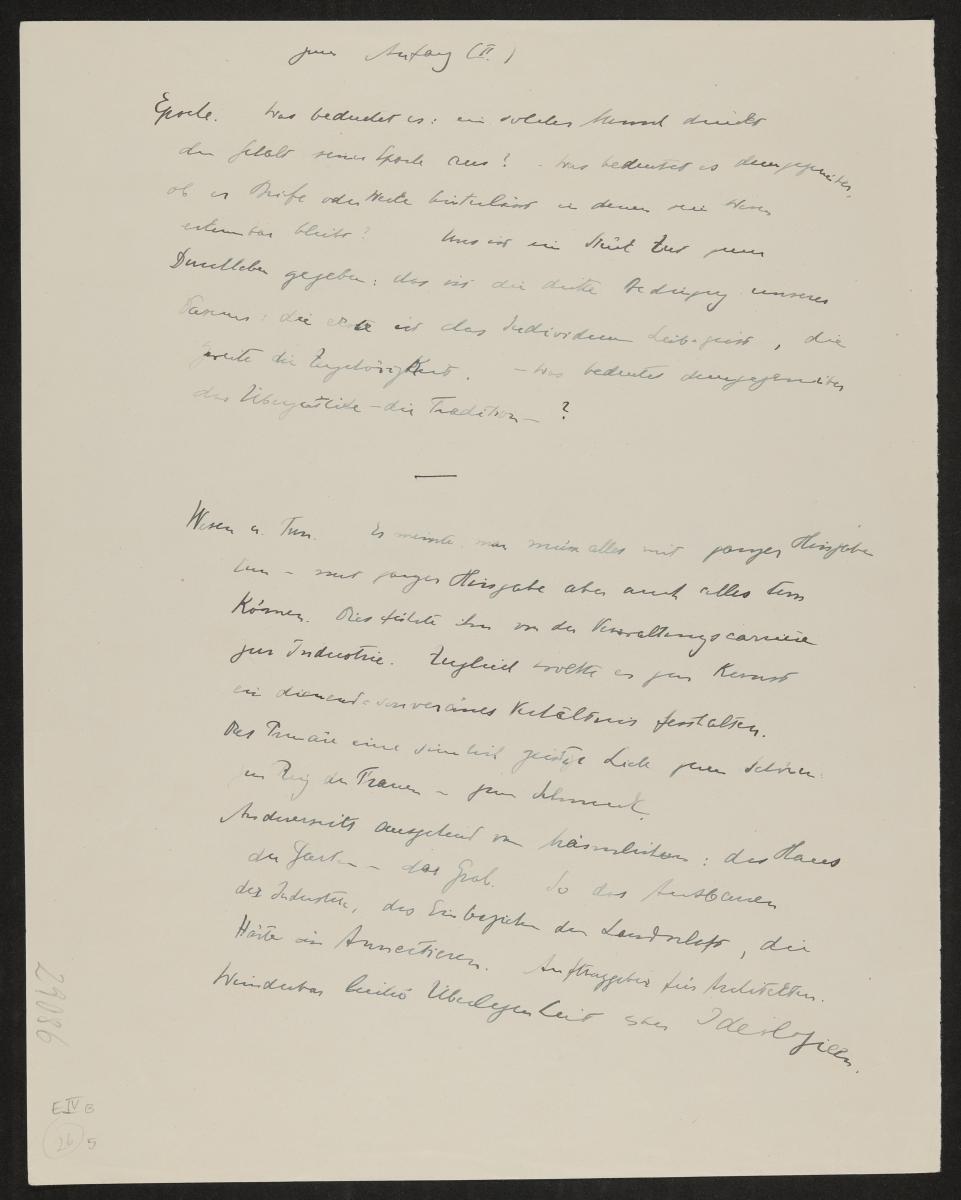 zum Anfang (II.)
Epoche. Was bedeutet es: ein solcher Mensch drückt
den Gehalt seiner Epoche aus? - Was bedeutet es demgegenüber,
ob er Briefe oder Werke hinterlässt in denen sein Wesen
erkennbar bleibt? Uns ist ein Stück Zeit zum
Durchleben gegeben: das ist die dritte Bedingung unseres
Daseins: die erste ist das Individuum Leib-geist, die
zweite die Zugehörigkeit. - Was bedeutet demgegenüber
das Überzeitliche - die Tradition - ?
Wesen u. Tun. Er meinte, man müsse alles mit ganzer Hingabe
tun - mit ganzer Hingabe aber auch alles tun
Können. Dies führte ihn von der Verwaltungscarriere
zur Industrie. Zugleich wollte er zur Kunst
ein dienend-souveränes Verhältnis festhalten.
Das Primäre eine sinnlich geistige Liebe zum Schönen:
zum Reiz der Frauen - zum Schmuck.
Andererseits ausgehend vom häuslichen: das Haus
der Garten - das Grab. So das Ausbauen
der Industrie, das Einbeziehen der Landschaft, die
Härte im Annectieren. Auftraggeber für Architekten.
Wunderbar Überlegenheit über Ideologien.
29086
E IV B
26 5